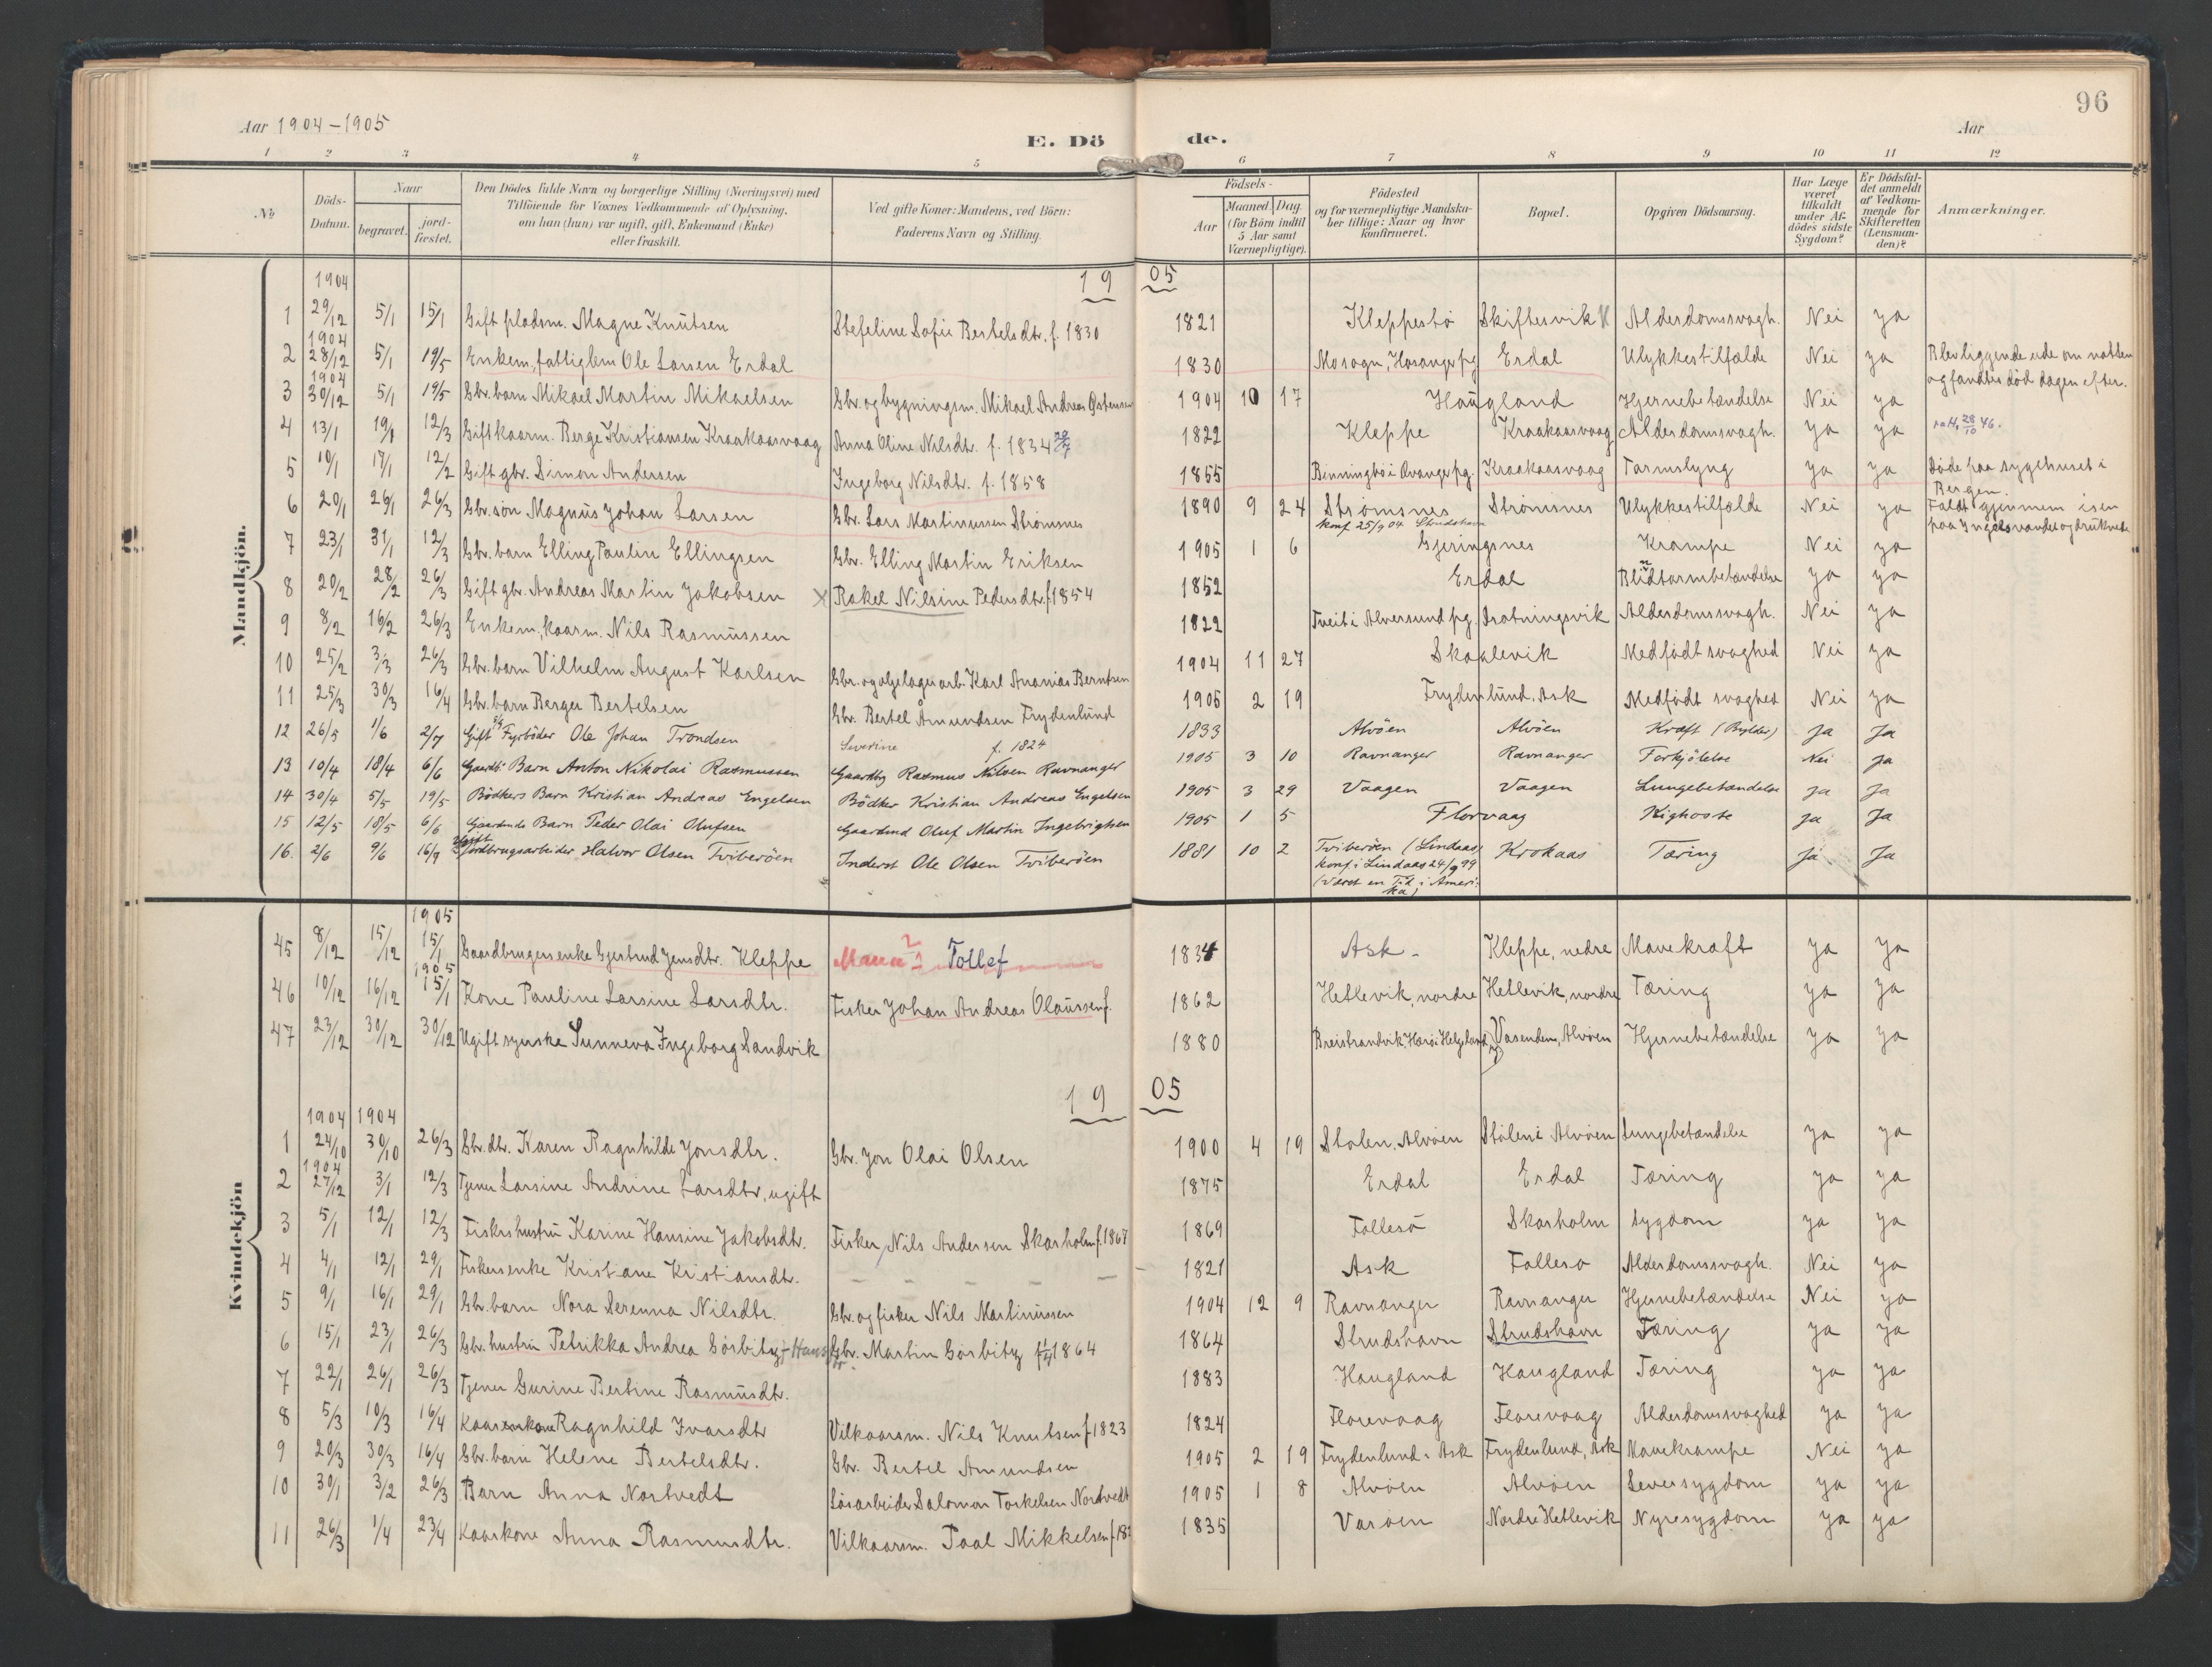 96
Aar 1904-1905
E. Dö de.
Aar
1 2 3 4 5 6 7 8 9 10 11 12
No
Döds-Datum.
Naar
begravet.
jord-fæstet.
Den Dödes fulde Navn og borgerlige Stilling (Næringsvei) med
Tilföiende for Voxnes Vedkommende af Oplysning,
om han (hun) var ugift, gift, Enkemand (Enke)
eller fraskilt.
Ved gifte Koner: Mandens, ved Börn:
Faderens Navn og Stilling.
Födsels-
Aar
Maaned. Dag.
(for Börn indtil
5 Aar samt
Værnepligtige).
Födested
og for værnepligtige Mandska-
ber tillige: Naar og hvor
konfirmeret.
Bopæl.
Opgiven Dödsaarsag.
Har Læge
været
tilkaldt
under Af-
dödes sidste
Sygdom?
Er Dödsfal-
det anmeldt
af Vedkom-
mende for
Skifteretten
(Lensman-
den)?
Anmærkninger.
Mandkjön.
1904
19 05
1 29/12 5/1 15/1 Gift pladsm. Magne Knutsen Stefeline Sofie Bertelsdtr. f. 1830 1821 Kleppestö Skiftesvik Alderdomssvagh. Nei ja
1904
2 28/12 5/1 19/5 Enkem., fattiglem Ole Larsen Erdal 1830 Mo sogn, Hosanger pg Erdal Ulykkestilfælde Nei ja Blev liggende ude om natten
og fandtes död dagen efter.
1904
3 30/12 5/1 19/5 Gbr. barn Mikael Martin Mikaelsen Gbr. og bygningsm. Mikael Andreas Østensen 1904 10 17 Haugland Hjernebetændelse Nei ja
4 13/1 19/1 12/3 Gift kaarm. Berge Kristiansen Kraakaasvaag Anna Oline Nilsdtr. f. 1834 1822 Kleppe Kraakaasvaag Alderdomssvagh. ja ja 28/10 46.
5 10/1 17/1 12/2 Gift gbr. Simon Andersen Ingeborg Nilsdtr. f. 1858 1855 Binningbö i Kraakaasvaag Tarmslyng ja ja Döde paa sygehuset i
Bergen.
6 20/1 26/1 26/3 Gbr. sön Magnus Johan Larsen Gbr. Lars Martinussen Strömsnes 1890 9 24 Strömsnes Strömsnes Ulykkestilfælde Nei ja Faldt gjennem isen
konf. 25/9 04 Strudshavn paa Ingelsvandet og druknede
7 23/1 31/1 12/3 Gbr. barn Elling Paulin Ellingsen Gbr. Elling Martin Eriksen 1905 1 6 Gjeringsnes Krampe Nei ja
8 20/2 28/2 26/3 Gift gbr. Andreas Martin Jakobsen X Rakel Nilsine Pedersdtr. f. 1854 1852 Erdal Blindtarmbetændelse ja ja
9 8/2 16/2 26/3 Enkem., kaarm. Nils Rasmussen 1822 Tveit i Alversund pg. Dratningsvik Alderdomssvagh. Nei ja
10 25/2 3/3 26/3 Gbr. barn Vilhelm August Karlsen Gbr. og oljelager arb. Karl Ananias Berntsen 1904 11 27 Skaalevik Medfödt svaghed Nei ja
11 25/3 30/3 16/4 Gbr. barn Berger Bertelsen Gbr. Bertel Åmundsen Frydenlund 1905 2 19 Frydenlund, Ask Medfödt svaghed Nei ja
12 26/5 1/6 2/7 Gift Fyrböder Ole Johan Trondsen Severine f. 1824 1833 Alvöen Alvöen Kræft (Bylder) Ja Ja
13 10/4 18/4 6/6 Gaardb. Barn Anton Nikolai Rasmussen Gaardbg Rasmus Nilsen Ravnanger 1905 3 10 Ravnanger Ravnanger Forkjölelse Nei Ja
14 30/4 5/5 19/5 Bödkers Barn Kristian Andreas Engelsen Bödker Kristian Andreas Engelsen 1905 3 29 Vaagen Vaagen Lungebetændelse Ja Ja
15 12/5 18/5 6/6 Gaardmds Barn Peder Olai Olufsen Gaardmd Oluf Martin Ingebrigtsen 1905 1 5 Florvaag Kighoste Ja Ja
16. 2/6 9/6 16/9 Ugift Jordbrugsarbeider Halvor Olsen Tviberöen Inderst Ole Olsen Tviberöen 1881 10 2 Tviberöen (Lindaas) Krokaas Tæring Ja Ja
konf i Lindaas 24/9 99
(Været en Tid i Ameri-
ka)
Kvindekjön
1905
45 8/12 15/12 15/1 Gaardbrugers enke Gjertrud Jensdtr. Kleppe Mann? Tollef 1834 Ask Kleppe, nedre Mavekræft ja ja
1905
46 10/12 16/12 15/1 Kone Pauline Larsine Larsdtr. Fisker Johan Andreas Olaussen f. 1862 Hetlevik, nordre Hetlevik, nordre Tæring ja ja
47 23/12 30/12 30/12 Ugift syerske Sunneva Ingeborg Sandvik 1880 Breistrandvik, Herö i Helgeland Vasenden, Alvöen Hjernebetændelse ja ja
19 05
1904 1904
1 24/10 30/10 26/3 Gbr. dtr. Karen Ragnhilde Jonsdtr. Gbr. Jon Olai Olsen 1900 4 19 Stölen, Alvöen Stölen i Alvöen Lungebetændelse ja ja
1904
2 27/12 3/1 12/3 Tjener Larsine Andrine Larsdtr, ugift 1875 Erdal Erdal Tæring ja ja
3 5/1 12/1 12/3 Fiskershustru Karine Hansine Jakobsdtr. Fisker Nils Andersen Skarholm f. 1867 1869 Follesö Skarholm Sygdom ja ja
4 4/1 12/1 29/1 Fiskersenke Kristiane Kristiansdtr. – – – – – 1821 Ask Follesö Alderdomssvagh. Nei ja
5 9/1 16/1 29/1 Gbr. barn Nora Serenna Nilsdtr. Gbr. og fisker Nils Martinussen 1904 12 9 Ravnanger Ravnanger Hjernebetændelse Nei ja
6 15/1 23/1 26/3 Gbr. hustru Petrikka Andrea Görbitz f. Hans dtr. Gbr. Martin Görbitz f. 1/4 1864 1864 Strudshavn Strudshavn Tæring ja ja
7 22/1 26/1 26/3 Tjener Gurine Bertine Rasmusdtr. 1883 Haugland Haugland Tæring ja ja
8 5/3 10/3 16/4 Kaarenkone Ragnhild Ivarsdtr Vilkaarsm. Nils Knutsen f. 1823 1824 Florevaag Florevaag Alderdomssvaghed ja ja
9 20/3 30/3 16/4 Gbr. barn Helene Bertelsdtr. Gbr. Bertel Amundsen 1905 2 19 Frydenlund, Ask Frydenlund, Ask Mavekrampe Nei ja
10 30/1 3/2 26/3 Barn Anna Nortvedt Lösarbeider Salomon Torkelsen Nordtvedt 1905 1 8 Alvöen Alvöen Leversygdom ja ja
11 26/3 1/4 23/4 Kaarkone Anna Rasmusdtr. Vilkaarsm. Paal Mikkelsen f. 1835 Varöen Nordre Hetlevik Nyresygdom ja ja